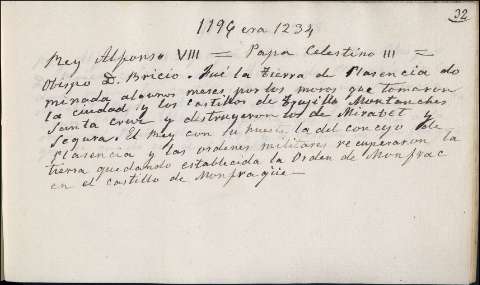 32
1196 era 1234
Rey Alfonso VIII = Papa Celestino III =
Obispo D. Bricio. Fué la tierra de Plasencia do
minada algunos meses, por los moros que tomaron
la ciudad y los castillos de Trujillo Montanches
Santa Cruz y destruyeron los de Mirabel y
Segura. El Rey con su hueste, la del concejo de
Plasencia y las ordenes militares recuperaron la
tierra quedando establecida la Orden de Monfrac
en el castillo de Monfragüe—